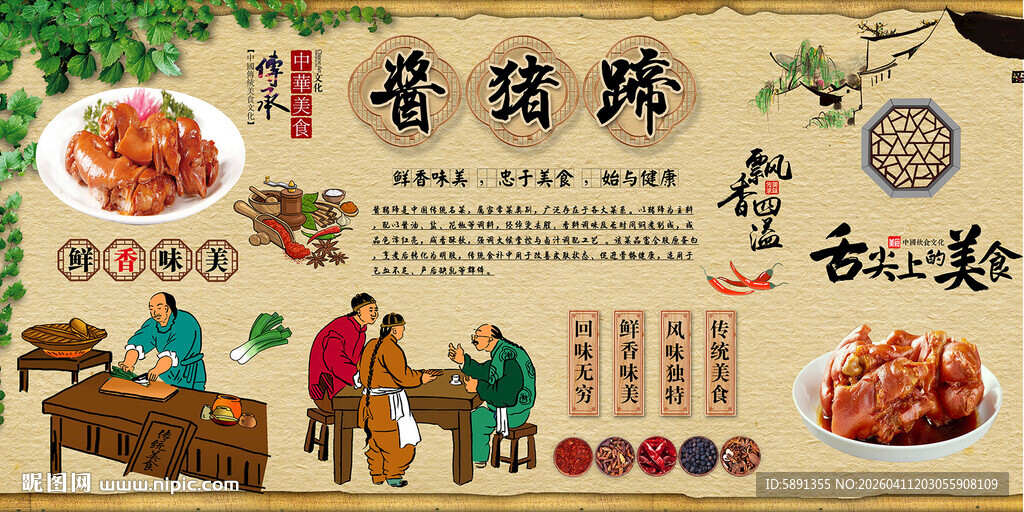 醬猪蹄
鲜香味美，忠于美食，始与健康
酱猪蹄是中国传统名菜，属家常菜类别，广泛存在于各大菜系，以猪蹄为主料
，配以酱油、盐、花椒等调料，经焯烫去腥、香料调味及长时间焖煮制成，成
品色泽红亮，咸香酥软，强调火候掌控与卤汁调配工艺。该菜品富含胶原蛋白
，烹煮后转化为明胶，传统食补中用于改善皮肤状态、促进骨骼健康，适用于
气血不足、产后缺乳等群体。
【中國傳統美食文化】
傳承
中華美食
文化
鲜香味美
飘香四溢
舌尖上的美食
美食
中國飲食文化
回味无穷
鲜香味美
风味独特
传统美食
传统美食
昵图网 www.nipic.com
ID:5891355 NO:20260411203055908109